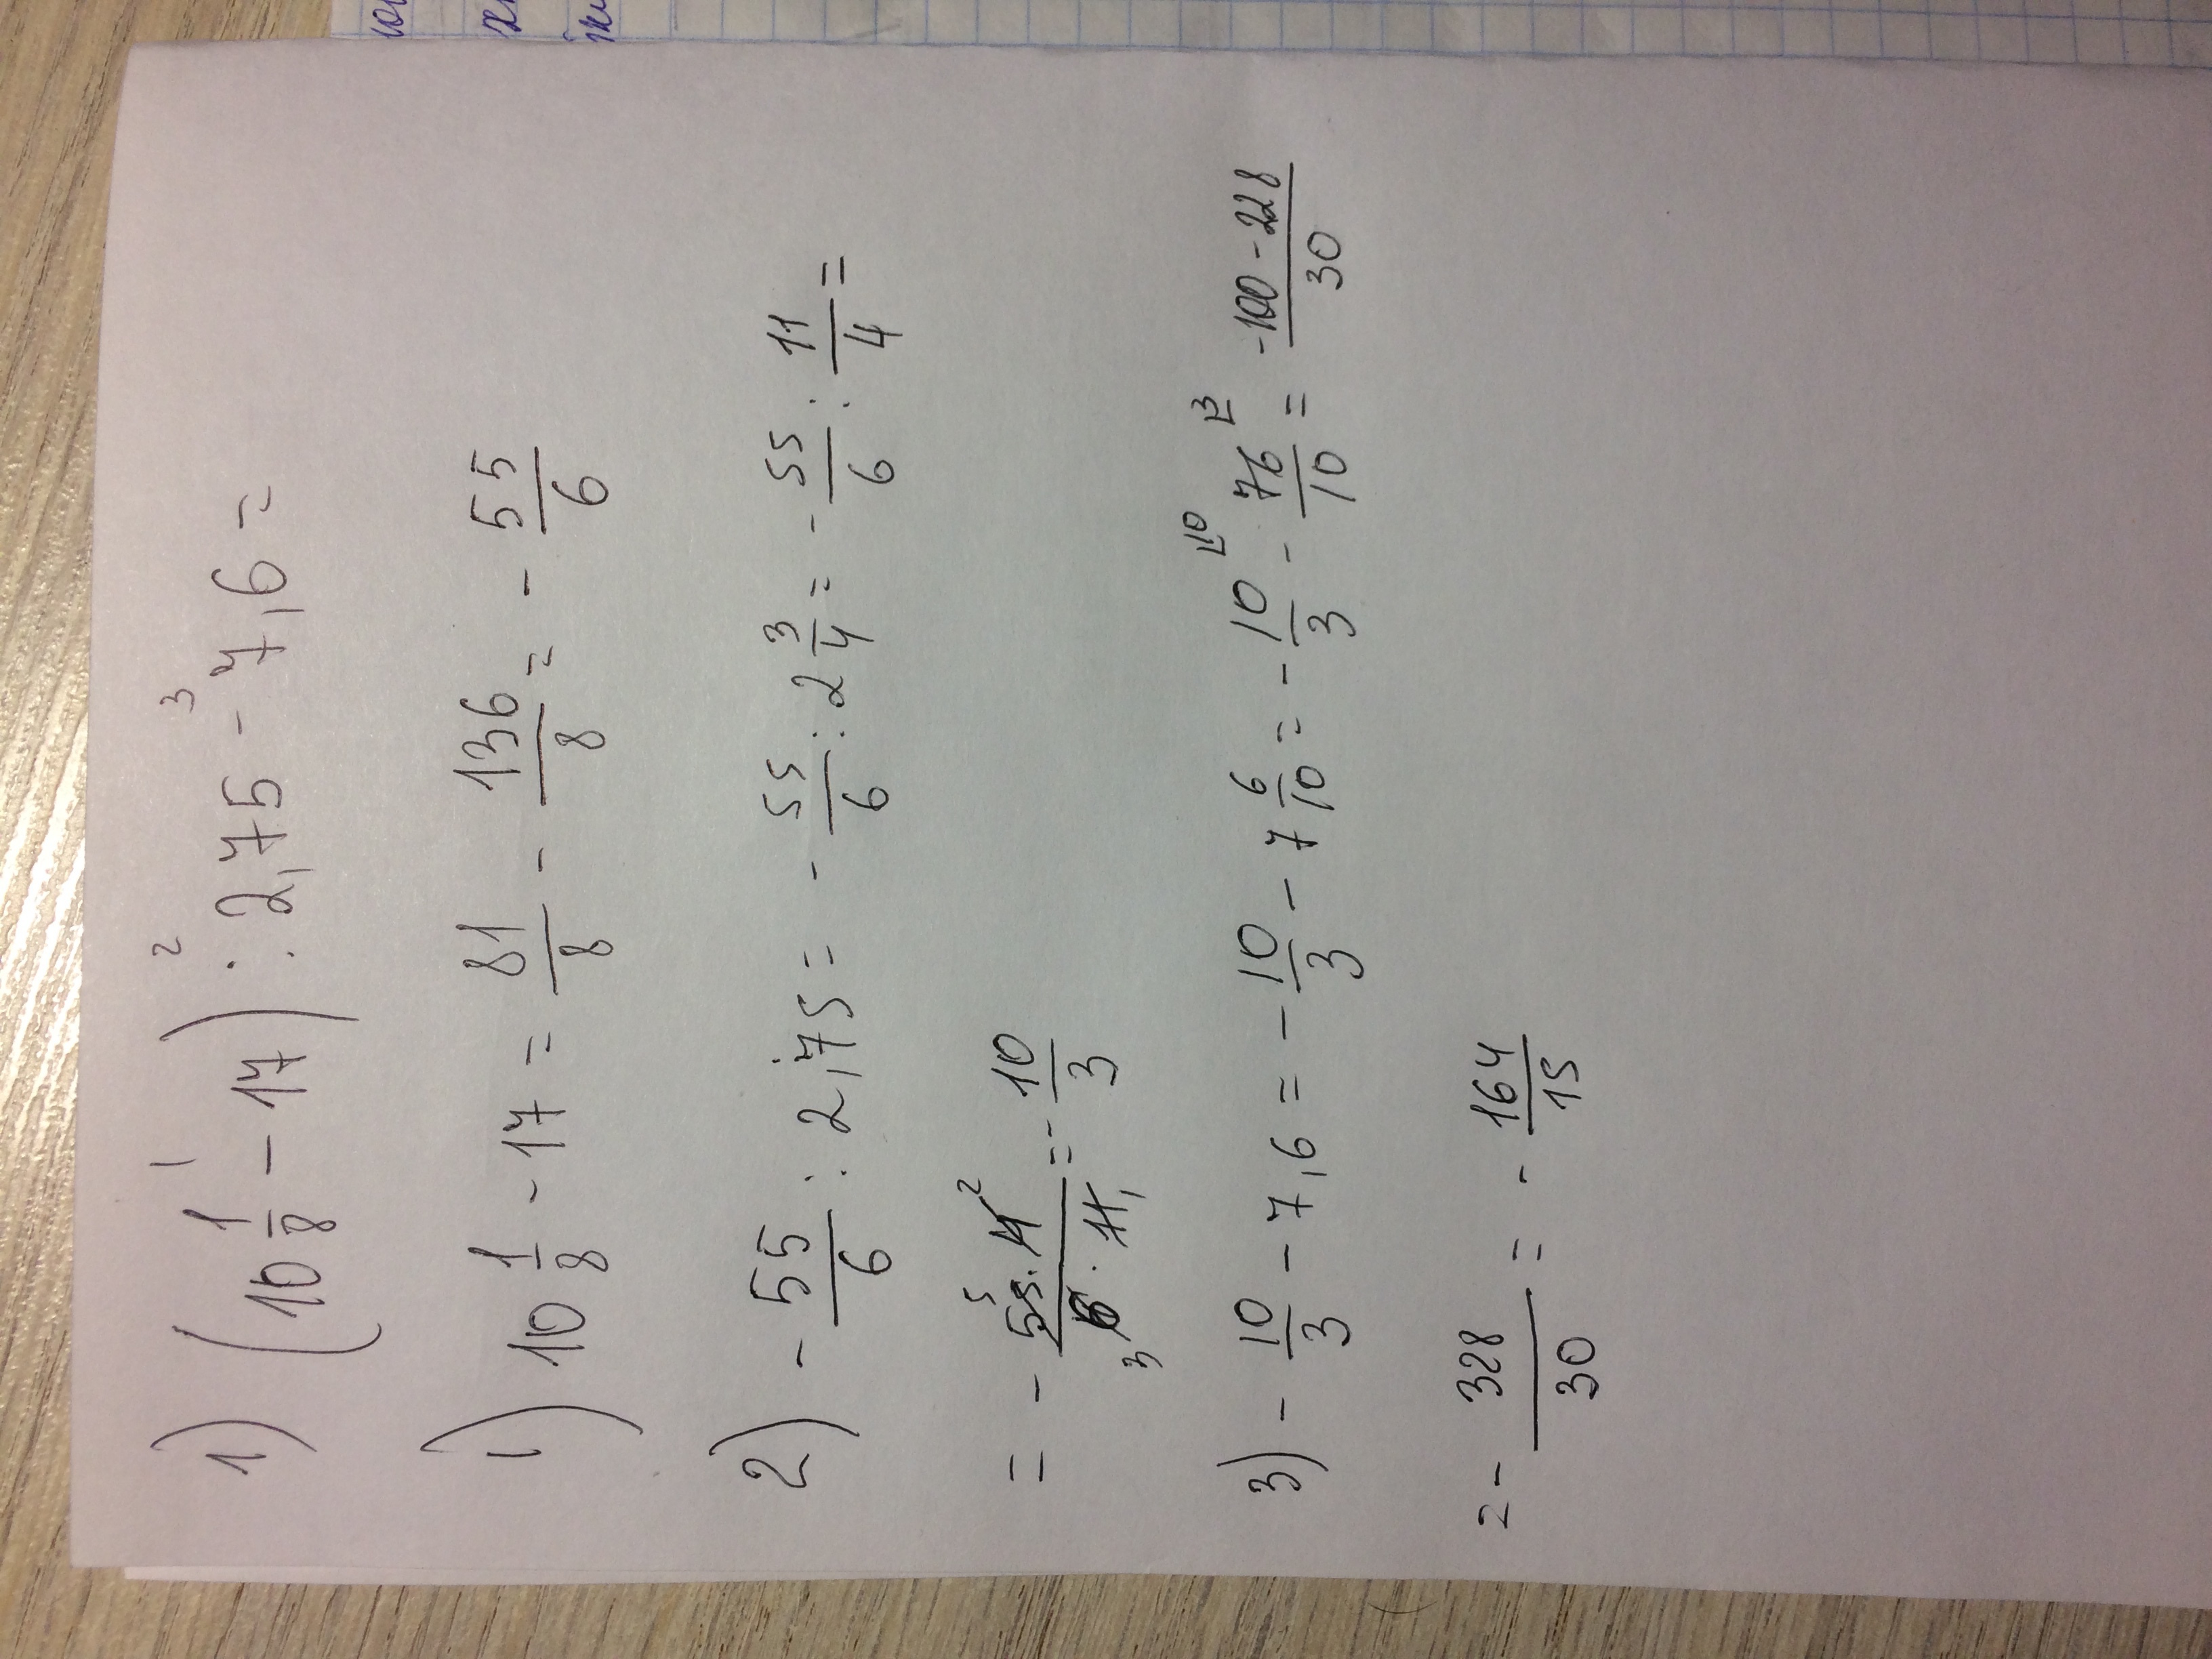 1) (10 1/8 - 17) : 2,75 - 7,6 =
1 2 3
1) 10 1/8 - 17 = 81/8 - 136/8 = - 55/6
2) - 55/6 : 2,75 = - 55/6 : 2 3/4 = - 55/6 : 11/4 =
= - 55 5 · 4 2 / 3 6 · 11 1 = - 10/3
3) - 10/3 - 7,6 = - 10/3 - 7 6/10 = - 10/3 ⌊10 - 76/10 ⌊3 = -100 - 228 / 30
= - 328/30 = - 164/15